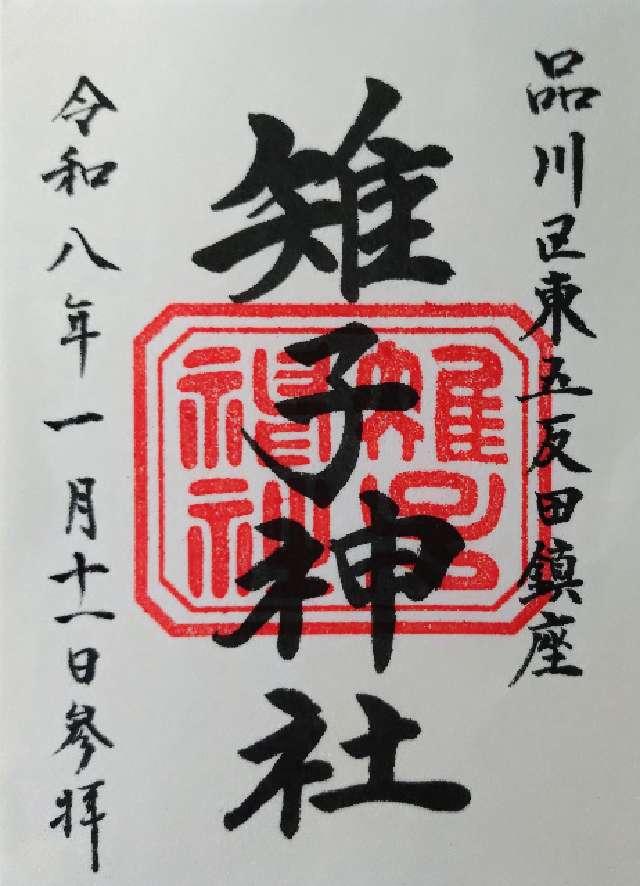 品川区東五反田鎮座
雉子神社
令和八年一月十一日参拝